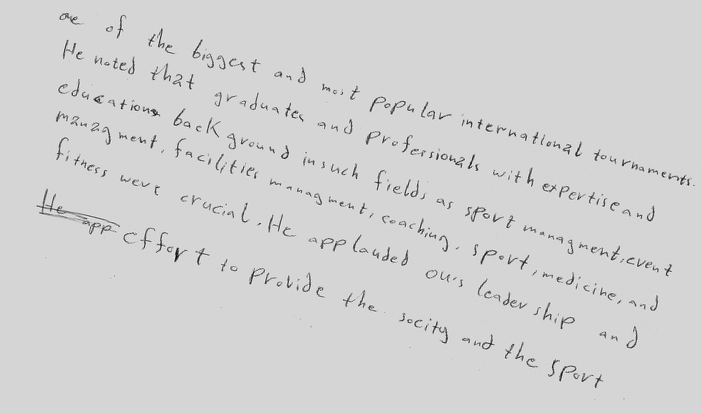 one of the biggest and most popular international tournaments.
He noted that graduates and professionals with expertise and
educations back ground in such fields as sport managment, event
managment, facilities managment, coaching, sport, medicine, and
fitness were crucial. He applauded our's leader ship and
He app effort to provide the socity and the sport